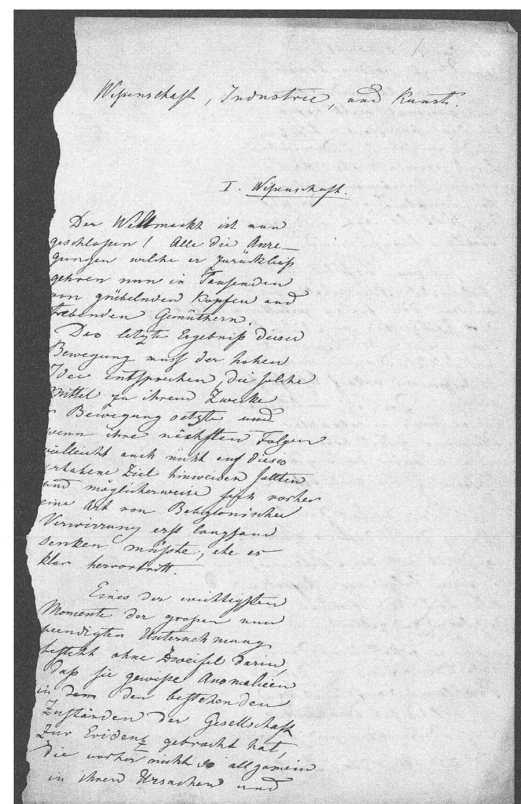 1.
Wissenschaft, Industrie, und Kunst.
I. Wissenschaft.
Der Weltmarkt ist nun
geschlossen! Alle die Anre-
gungen welche er zurückließ
gähren nun in Tausenden
von grübelnden Köpfen und
Gemüthern.
Das letzte Ergebniß dieser
Bewegung muß der hohen
Idee entsprechen, die solche
Mittel zu ihrem Zwecke
in Bewegung setzte und
wenn ihre nächsten Folgen
vielleicht auch nicht auf dieses
erhabene Ziel hinweisen sollten
und möglicherweise sich vorher
eine Art von Babylonischer
Verwirrung erst langsam
senken müßte, ehe es
klar hervortritt.
Eines der wichtigsten
Momente der großen nun
beendigten Unternehmung
besteht ohne Zweifel darin,
daß sie gewisse Anomalieen
in den bestehenden
Zuständen der Gesellschaft
zur Evidenz gebracht hat,
die vorher nicht so allgemein
in ihren Ursachen und